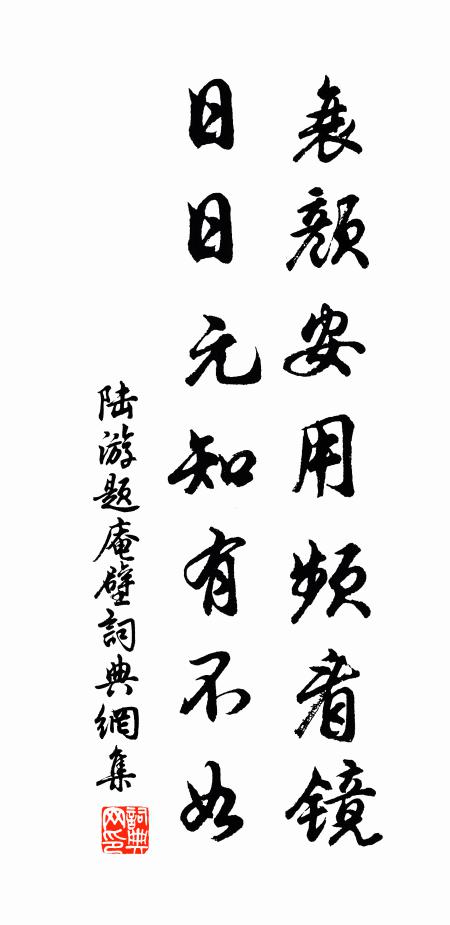 衰颜安用频看镜
日日元知有不如
陆游题庵壁詞典網集
詞典网印